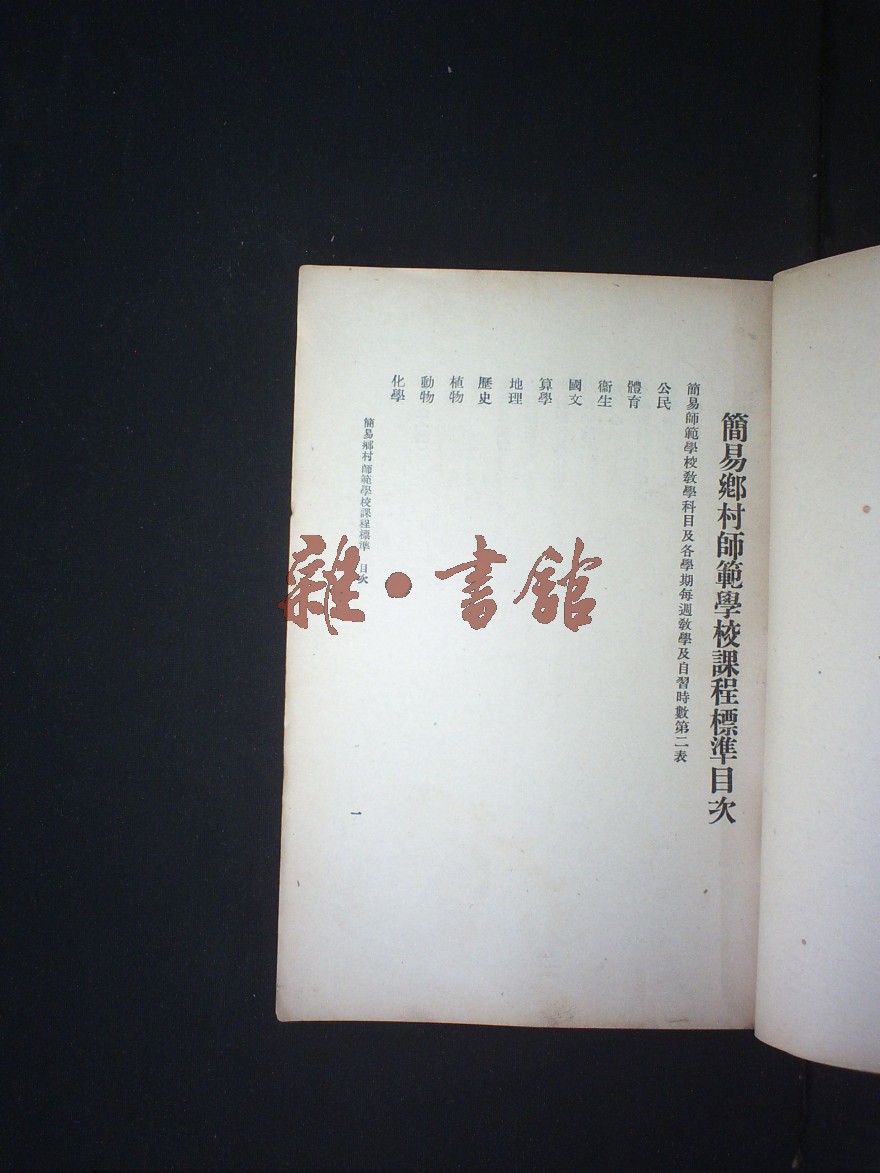 簡易鄉村師範學校課程標準目次
簡易師範學校敎學科目及各學期每週敎學及自習時數第二表
公民
體育
衞生
國文
算學
地理
歷史
植物
動物
化學
簡易鄉村師範學校課程標準 目次
一
雜·書館